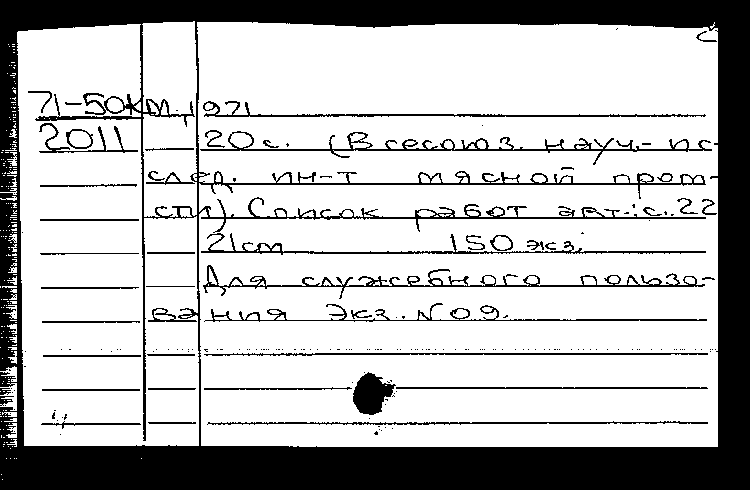 71-50км М., 1971.
2011 20с. (Всесоюз. науч.-ис-
след. ин-т мясной пром-
сти). Список работ авт.: с.22
21см 150 экз.
Для служебного пользо-
вания Экз. №09.
4